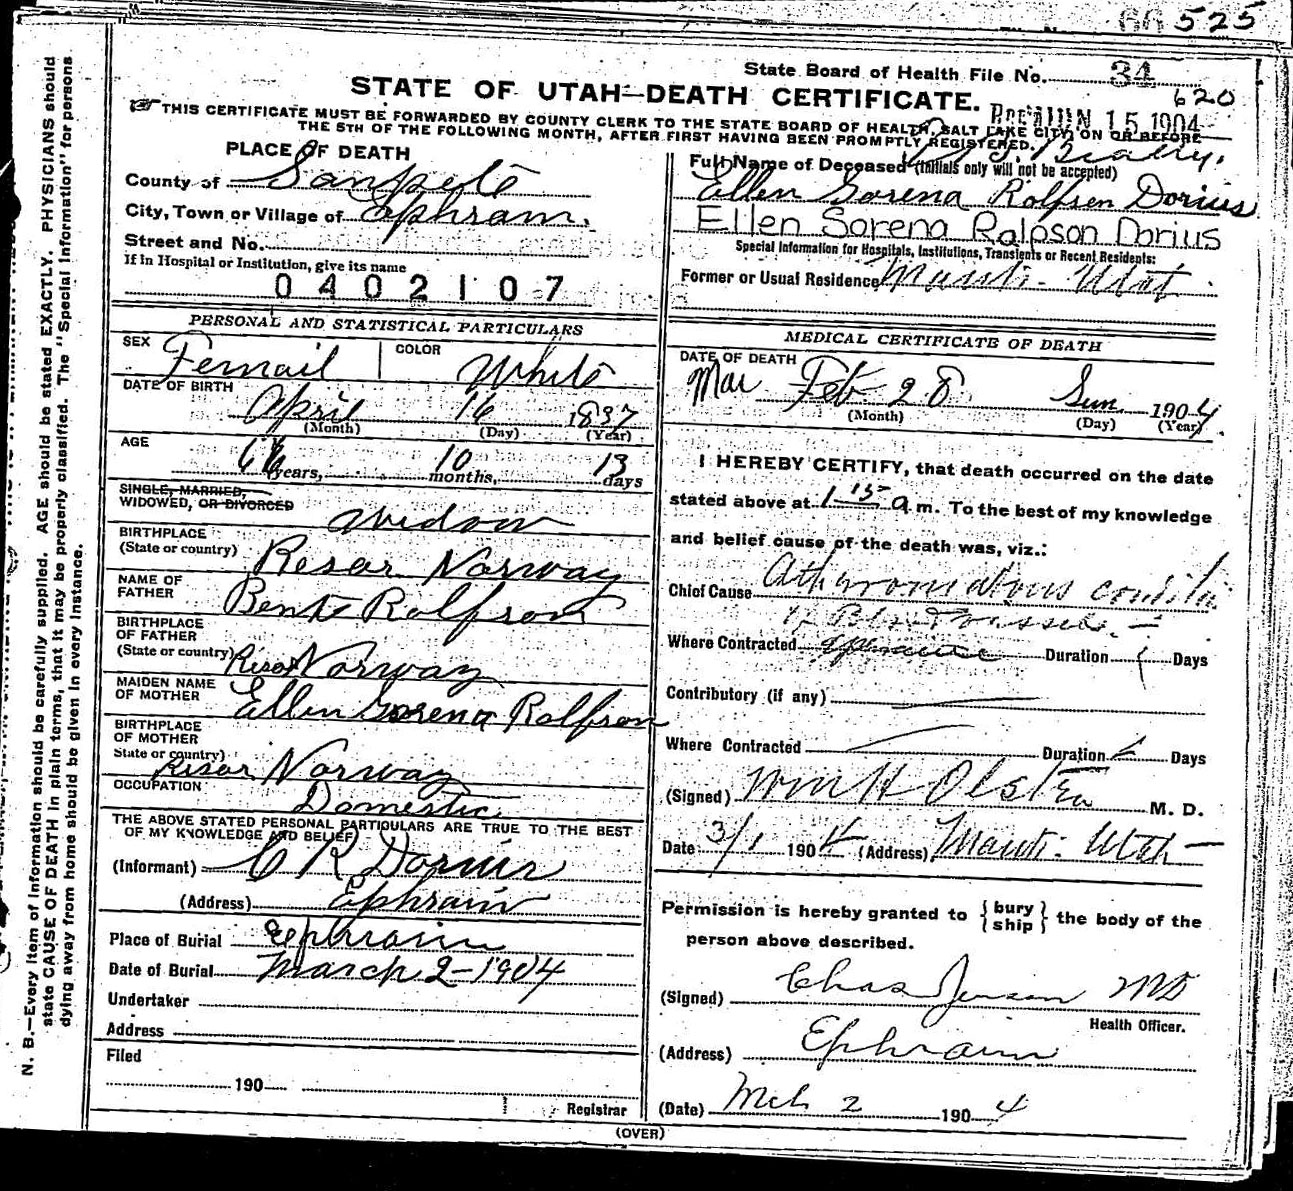 525
State Board of Health File No. 34
620
STATE OF UTAH—DEATH CERTIFICATE.
THIS CERTIFICATE MUST BE FORWARDED BY COUNTY CLERK TO THE STATE BOARD OF HEALTH, SALT LAKE CITY, ON OR BEFORE
THE 5TH OF THE FOLLOWING MONTH, AFTER FIRST HAVING BEEN PROMPTLY REGISTERED.
Rec'd JUN 15 1904
PLACE OF DEATH
County of Sanpete
City, Town or Village of Ephraim.
Street and No.
If in Hospital or Institution, give its name
0402107
Full Name of Deceased (Initials only will not be accepted)
Ellen Sorena Rolfsen Dorius
Ellen Sorena Ralpson Dorius
Special Information for Hospitals, Institutions, Transients or Recent Residents:
Former or Usual Residence Manti - Utah
PERSONAL AND STATISTICAL PARTICULARS
SEX Femail
COLOR White
DATE OF BIRTH
April 16 1837
(Month) (Day) (Year)
AGE
66 years, 10 months, 13 days
SINGLE, MARRIED,
WIDOWED, OR DIVORCED Widow
BIRTHPLACE
(State or country) Resor Norway
NAME OF
FATHER Bent Rolfson
BIRTHPLACE
OF FATHER
(State or country) Risor Norway
MAIDEN NAME
OF MOTHER Ellen Sorena Rolfson
BIRTHPLACE
OF MOTHER
State or country) Risor Norway
OCCUPATION
Domestic
THE ABOVE STATED PERSONAL PARTICULARS ARE TRUE TO THE BEST
OF MY KNOWLEDGE AND BELIEF)
(Informant) C R Dorius
(Address) Ephraim
Place of Burial Ephraim
Date of Burial March 2-1904
Undertaker
Address
Filed
190
Registrar
MEDICAL CERTIFICATE OF DEATH
DATE OF DEATH
Mar Feb 28 Sun 1904
(Month) (Day) (Year)
I HEREBY CERTIFY, that death occurred on the date
stated above at 1 15 a m. To the best of my knowledge
and belief cause of the death was, viz.:
Chief Cause Atheromatous
Where Contracted Duration Days
Contributory (if any)
Where Contracted Duration Days
(Signed) Wm H Olsten M. D.
Date 3/1 1904 (Address) Manti - Utah
Permission is hereby granted to { bury ship } the body of the
person above described.
(Signed) Chas Jenson MD
Health Officer.
(Address) Ephraim
(Date) Mch 2 1904
(OVER)
N. B.—Every item of information should be carefully supplied. AGE should be stated EXACTLY. PHYSICIANS should
state CAUSE OF DEATH in plain terms, that it may be properly classified. The "Special Information" for persons
dying away from home should be given in every instance.